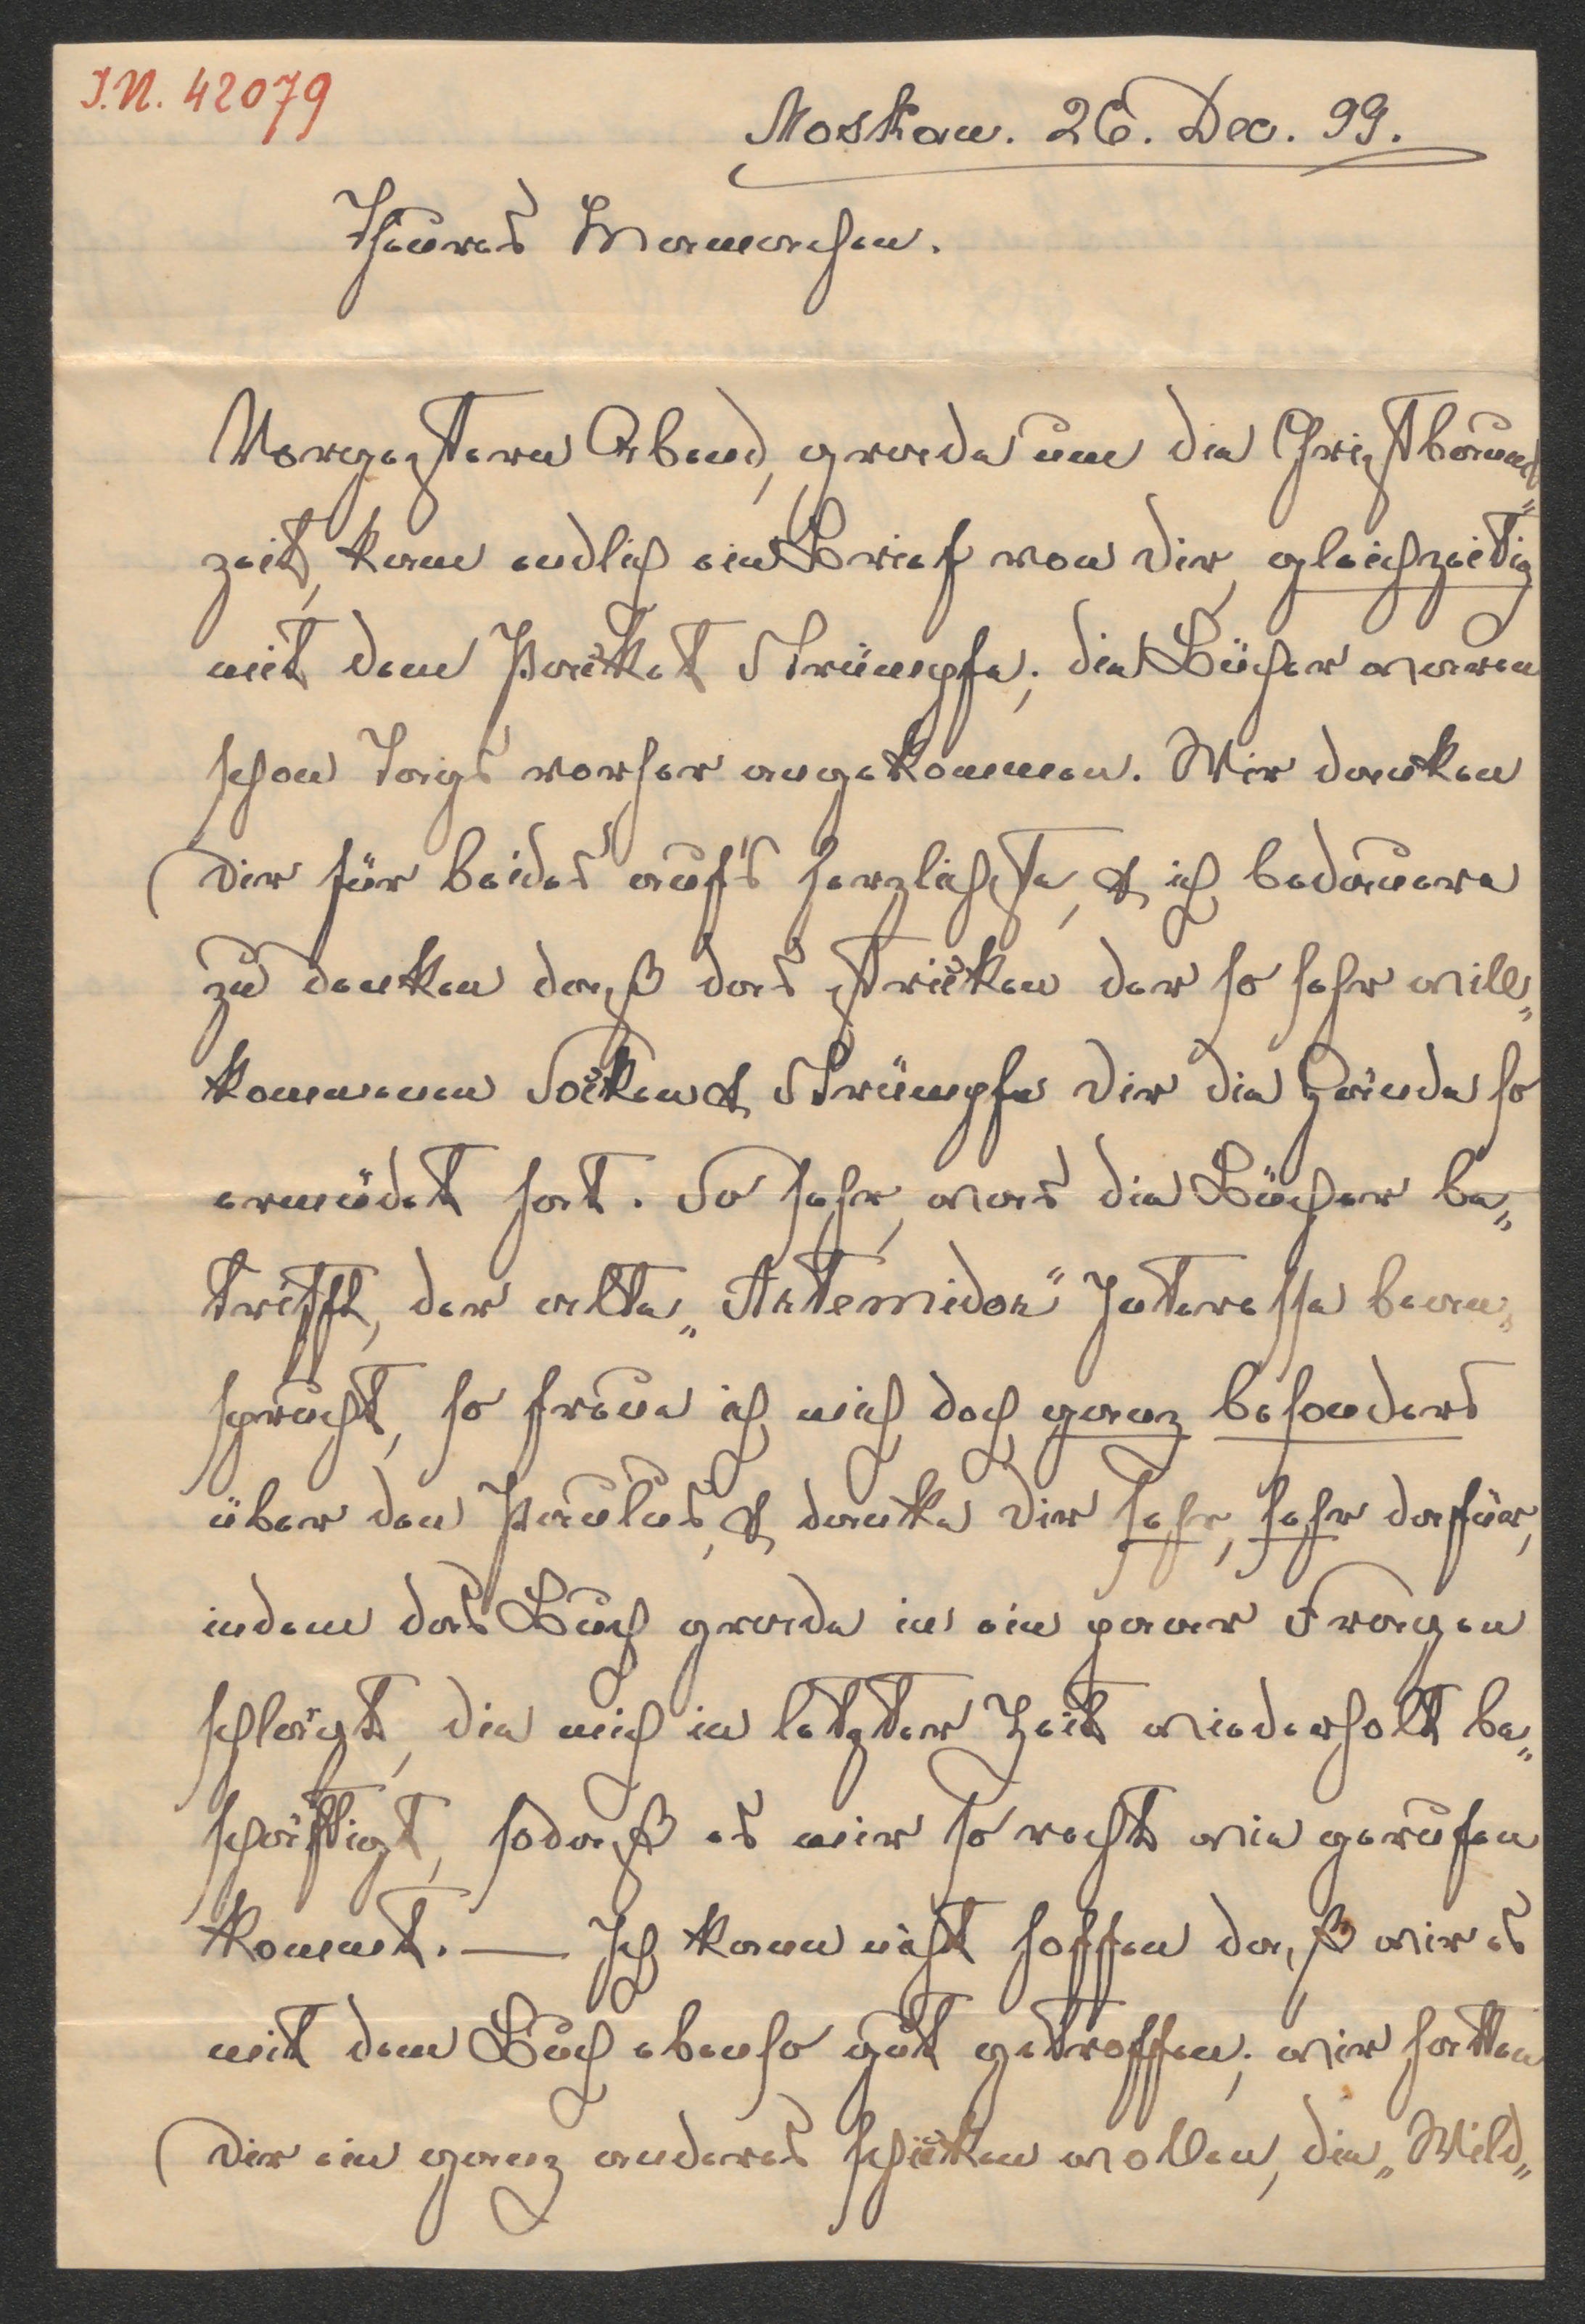 I.N. 42079
Moskau. 26. Dec. 99.
Theures Mamachen.
Vorgestern Abend, grade um die Christbaum„
zeit, kam endlich ein Brief von Dir, gleichzeitig
mit dem Packet Strümpfe; die Bücher waren
schon Tags vorher angekommen. Wir danken
Dir für beides auf's herzlichste, & ich bedauere
zu denken daß das Stricken der so sehr will„
kommenen Socken & Strümpfe Dir die Hände so
ermüdet hat. So sehr, was die Bücher be„
trifft, der alte „Artemidor“ Interesse bean„
sprucht, so freue ich mich doch ganz besonders
über den Paulus, & danke Dir sehr, sehr dafür,
indem das Buch grade in ein paar Fragen
schlägt, die mich in letzter Zeit wiederholt be„
schäftigt, sodaß es mir so recht wie gerufen
kommt. — Ich kann nicht hoffen daß wir es
mit dem Buch ebenso gut getroffen; wir hatten
Dir ein ganz anderes schicken wollen, die „Wild„